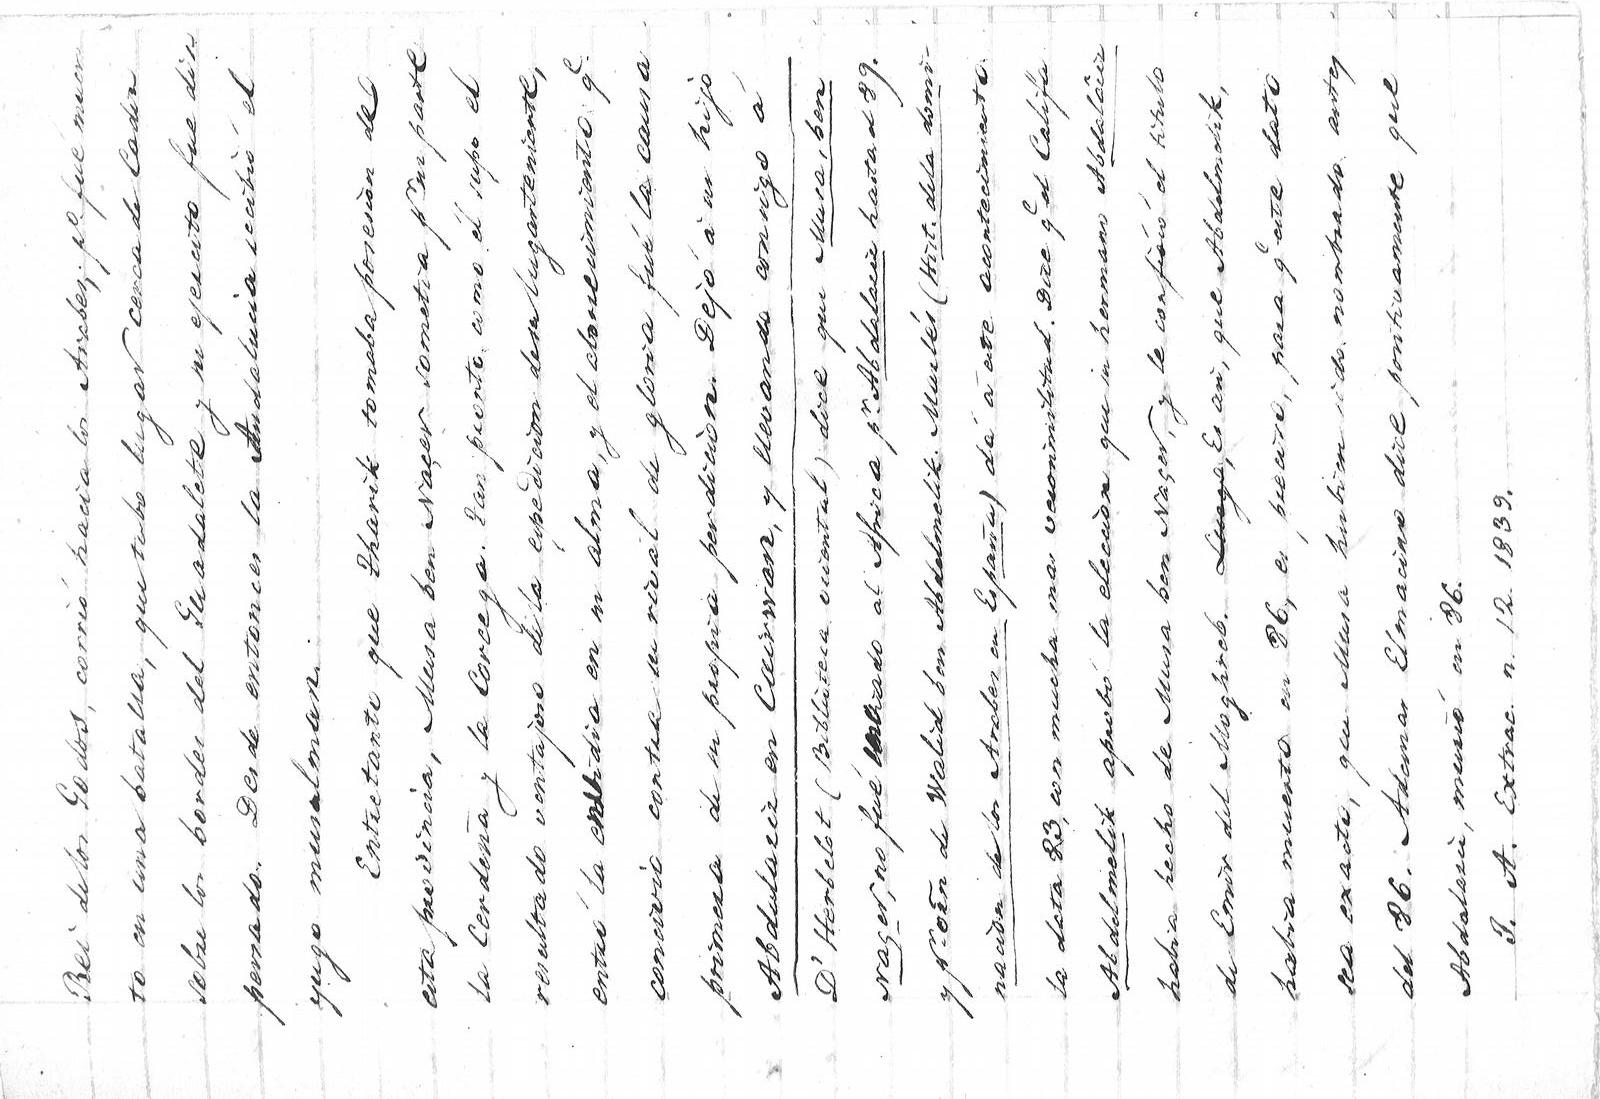 Rei de los Godos, corrió hacia los Arabes; pº fué muer
to en una batalla, que tubo lugar cerca de Cadiz
sobre los bordes del Guadalete y su ejercito fue dis
persado. Desde entonces la Andalucia recibió el
yugo musulman.
Entretanto que Tharik tomaba posesion de
esta provincia, Musa ben Naçer sometia pr su parte
la Cerdeña y la Corcega. Tan pronto como él supo el
resultado ventajoso de la espedicion de su lugarteniente,
entró la envidia en su alma, y el aborrecimiento qe
concivió contra su rival de gloria fué la causa
primera de su propia perdicion. Dejó á su hijo
Abdulasis en Cairwan, y llevando consigo á
D'Herbelot (Biblioteca oriental) dice que Musa, ben
Naçer, no fué enviado al Africa pr Abdalasis hasta el 89.
y pr orñ de Walid ben Abdelmelik. Murlés (Hist. dela domi-
nacion de los Arabes en España) dá á este acontecimiento
la data 83, con mucha mas verosimilitud. Dice qe el Califa
Abdelmelik aprobó la eleccion que su hermano Abdalâsis
habia hecho de Musa ben Naçer, y le confirió el titulo
de Emir del Maghreb. Es asi, que Abdelmelik,
habia muerto en 86, es preciso, para qe este dato
sea exacto, que Musa hubiera sido nombrado antes
del 86. Ademas Elmacino dice positivamente que
Abdalasis, murió en 86.
T. A. Extrac. n. 12. 1839.